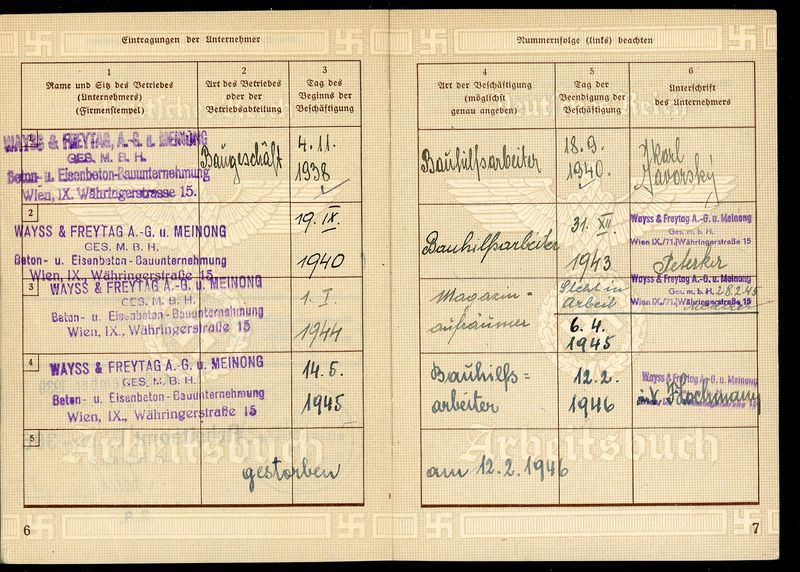 Eintragungen der Unternehmer
1
Name und Sitz des Betriebes
(Unternehmers)
(Firmenstempel)
2
Art des Betriebes
oder der
Betriebsabteilung
3
Tag des
Beginns der
Beschäftigung
WAYSS & FREYTAG, A.-G. u. MEINONG
GES. M. B. H.
Beton- u. Eisenbeton-Bauunternehmung
Wien, IX. Währingerstrasse 15.
Baugeschäft
4.11.
1938
2
WAYSS & FREYTAG A.-G. u. MEINONG
GES. M. B. H.
Beton- u. Eisenbeton-Bauunternehmung
Wien, IX., Währingerstraße 15
19. IX.
1940
3
WAYSS & FREYTAG A.-G. u. MEINONG
GES. M. B. H.
Beton- u. Eisenbeton-Bauunternehmung
Wien, IX., Währingerstraße 15
1. I.
1944
4
WAYSS & FREYTAG A.-G. u. MEINONG
GES. M. B. H.
Beton- u. Eisenbeton-Bauunternehmung
Wien, IX., Währingerstraße 15
14. 5.
1945
5
gestorben
Arbeitsbuch
6
Nummernfolge (links) beachten
4
Art der Beschäftigung
(möglichst
genau angeben)
5
Tag der
Beendigung der
Beschäftigung
6
Unterschrift
des Unternehmers
Bauhilfsarbeiter
18.9.
1940.
Karl
Javorský
Bauhilfsarbeiter
31. XII.
1943
Wayss & Freytag A.-G. u. Meinong
Ges. m. b. H.
Wien IX./71, Währingerstraße 15
Peterker
Magazin-
aufräumer
Steht in
Arbeit
6. 4.
1945
Wayss & Freytag A.-G. u. Meinong
Ges. m. b. H. 28.2.45
Wien IX./71, Währingerstraße 15
Bauhilfs=
arbeiter
12.2.
1946
Wayss & Freytag A.-G. u. Meinong
i.V.
am 12.2.1946
Arbeitsbuch
7